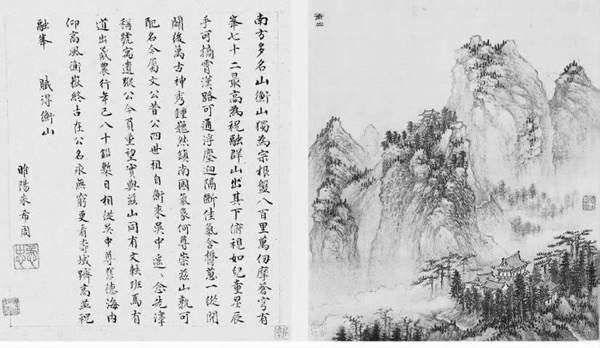 南方多名山衡山獨為宗根盤八百里萬仞摩蒼穹有
峯七十二最高為祝融群山出其下俯視如兒童星辰
手可摘霄漢路可通浮塵迥隔斷佳氣含欝蔥一從開
闢後萬古神秀鍾巍然鎮南國氣象何尊崇茲山孰可
配名今屬文公昔公四世祖自衡來吳中遙〻念先澤
稱號寓遺蹤公今負重望實與茲山同有文軼班馬有
道出羲農行年已八十鉛槧日相從吳中尊舊德海內
仰高風衡嶽終古在公名永無窮更看壽域躋高並祝
融峯 賦得衡山
睢陽朱希周
衡山